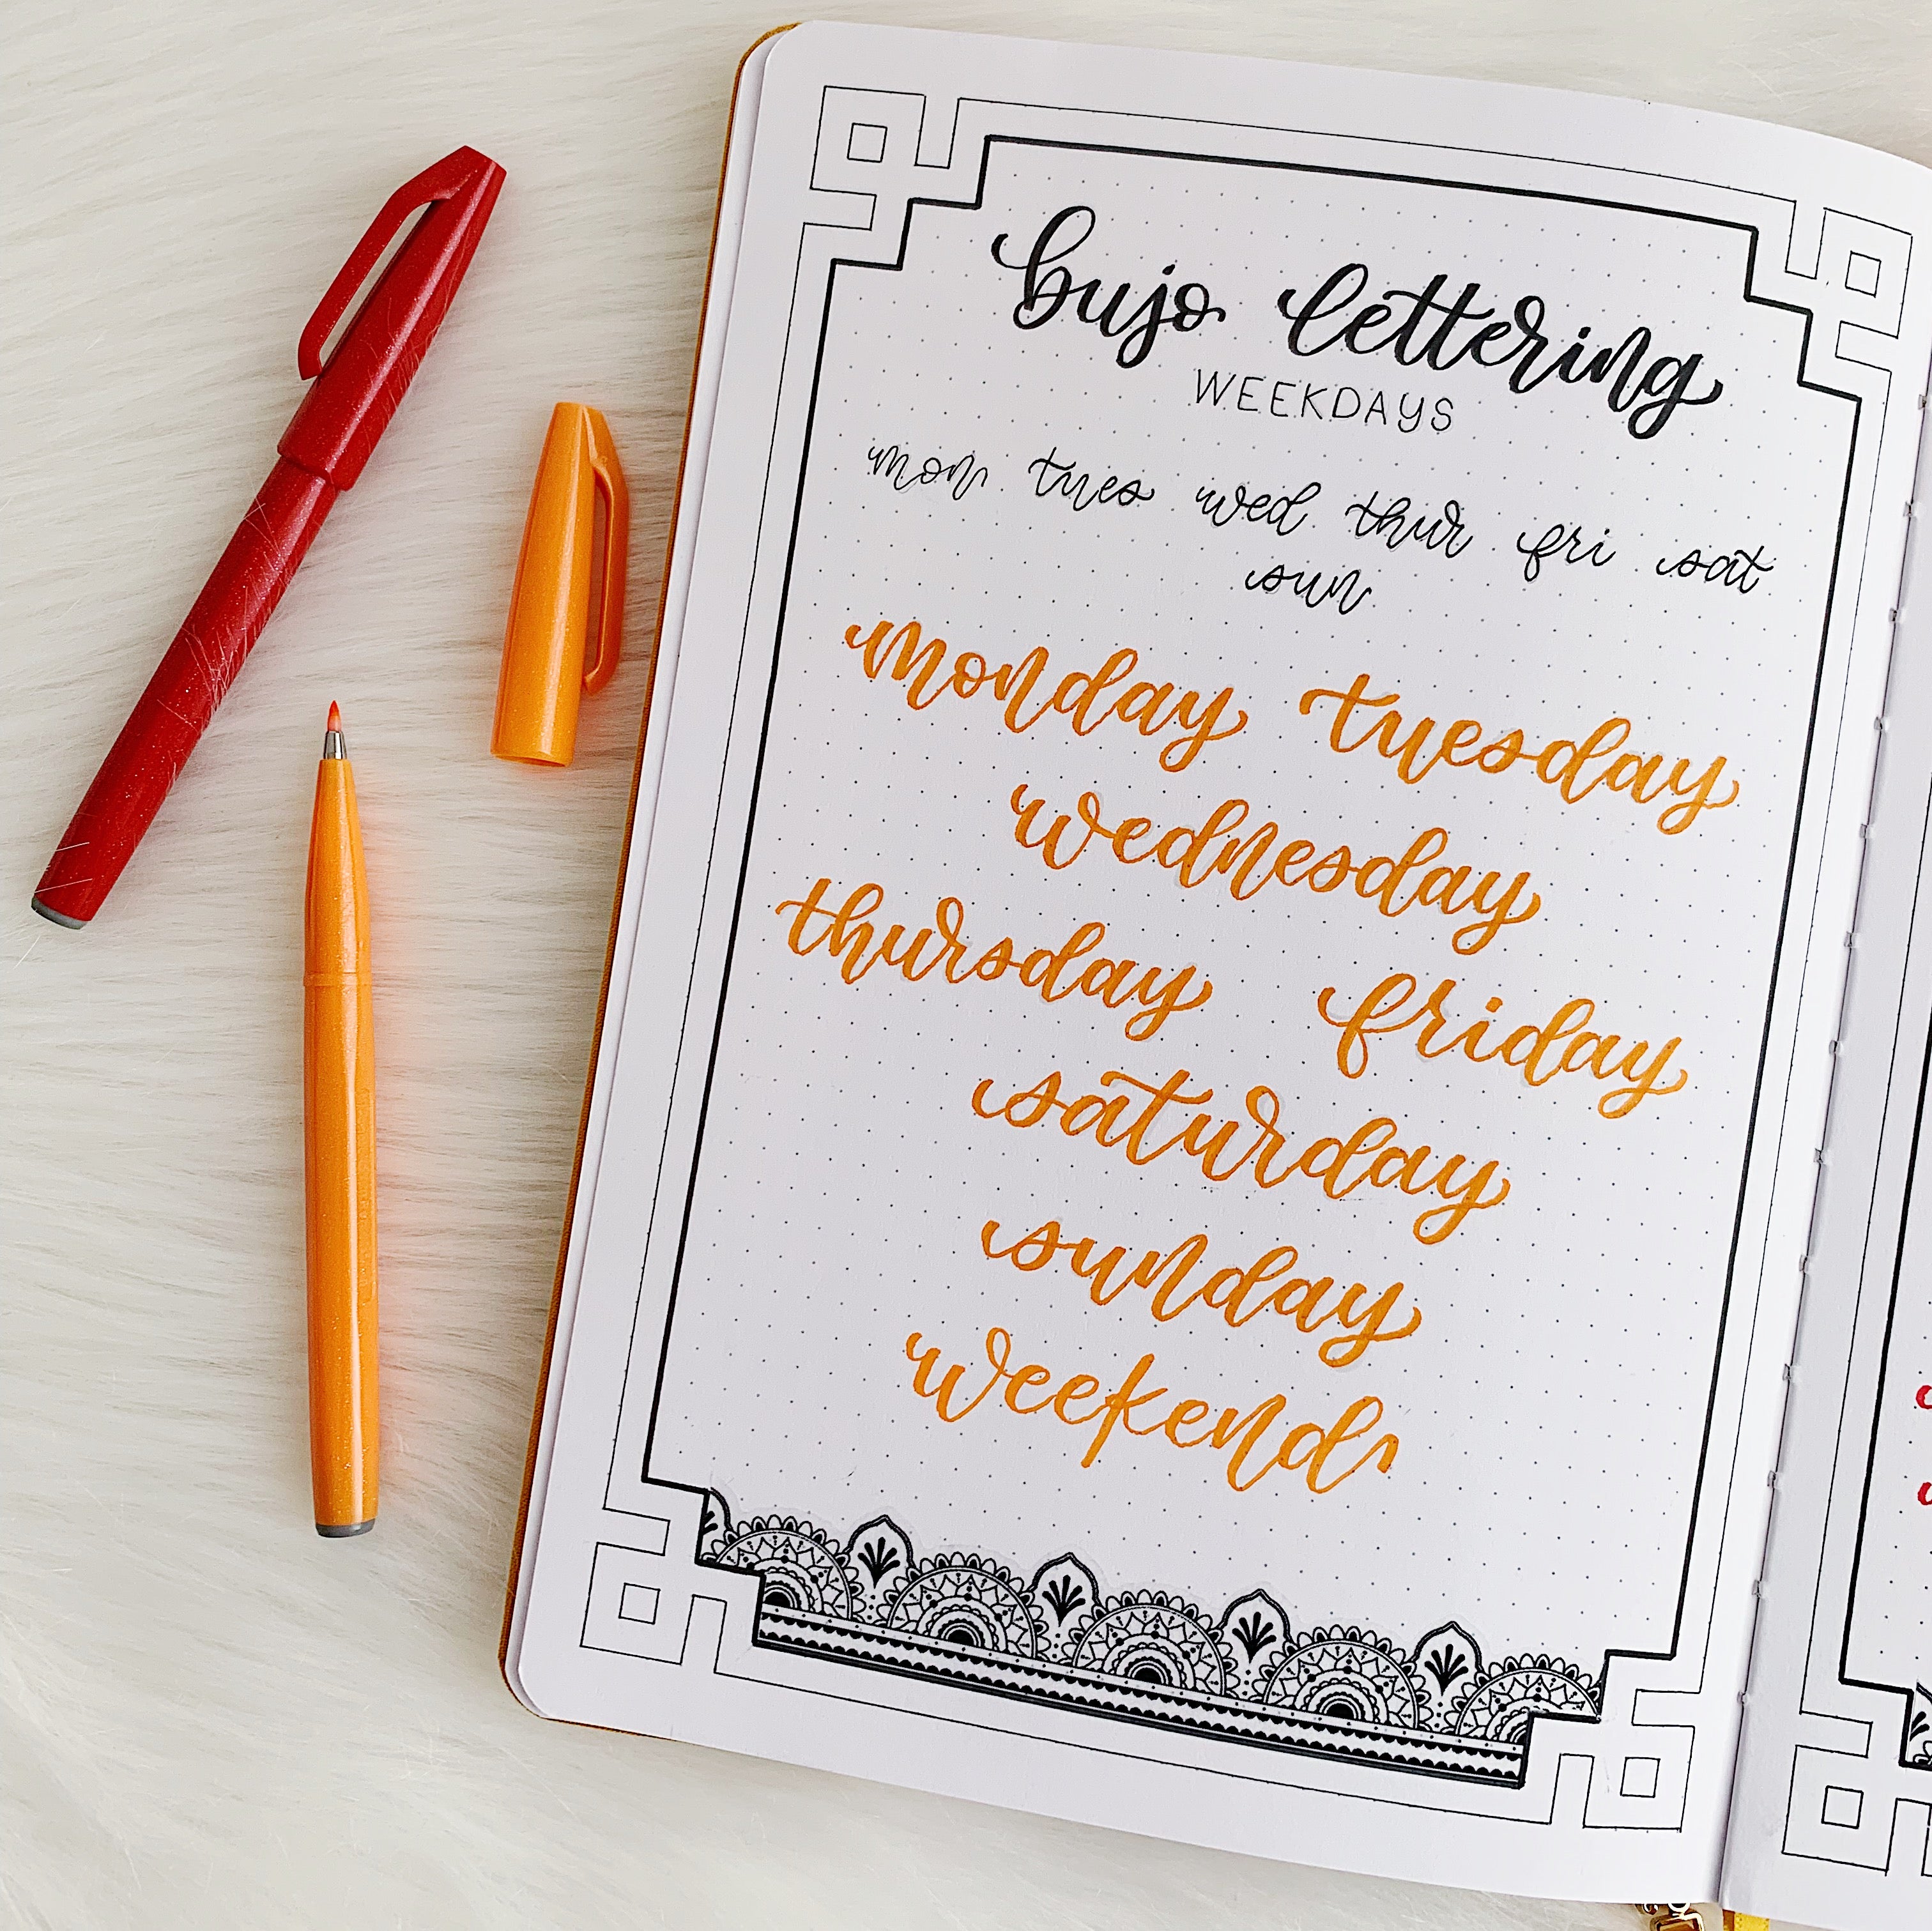 bujo lettering
WEEKDAYS
mon tues wed thur fri sat
sun
monday tuesday
wednesday
thursday friday
saturday
sunday
weekend